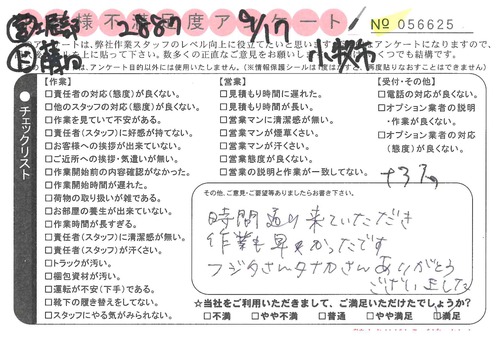 様不満足度アンケート
2887
9/17
No 056625
小牧市
アンケートは、弊社作業スタッフのレベル向上に役立てたいと思います
※アンケート目的以外には使用いたしません。
チェックリスト
【作業】
□責任者の対応(態度)が良くない。
□他のスタッフの対応(態度)が良くない。
□作業を見ていて不安がある。
□責任者(スタッフ)に好感が持てない。
□お客様への挨拶が出来ていない。
□ご近所への挨拶・気遣いが無い。
□作業開始前の内容確認がなかった。
□作業開始時間が遅れた。
□荷物の取り扱いが雑である。
□お部屋の養生が出来ていない。
□作業時間が長すぎる。
□責任者(スタッフ)に清潔感が無い。
□責任者(スタッフ)が汗くさい。
□トラックが汚い。
□梱包資材が汚い。
□運転が不安(下手)である。
□靴下の履き替えをしてない。
□スタッフにやる気がみられない。
【営業】
□見積もり時間に遅れた。
□見積もり時間が長い。
□営業マンに清潔感が無い。
□営業マンが煙草くさい。
□営業マンが汗くさい。
□営業態度が良くない。
□営業の説明と作業が一致してない。
【受付・その他】
□電話の対応が良くない。
□オプション業者の説明・作業が良くない。
□オプション業者の対応(態度)が良くない。
その他、ご意見・ご要望等ありましたらお書き下さい。
時間通り来ていただき
作業も早かったです
フジタさんタナカさんありがとう
ございました
☆当社をご利用いただきまして、ご満足いただけたでしょうか?
□不満 □やや不満 □普通 □やや満足 □満足